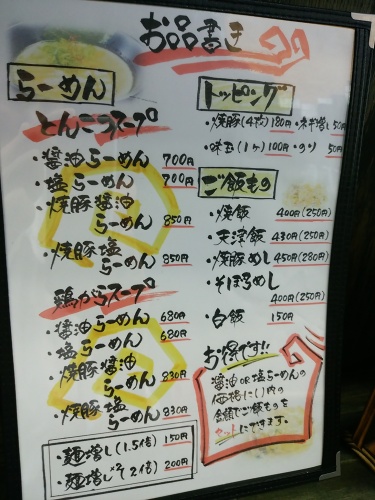 お品書き
らーめん
とんこつスープ
・醤油らーめん 700円
・塩らーめん 700円
・焼豚醤油
らーめん 850円
・焼豚塩
らーめん 850円
鶏がらスープ
・醤油らーめん 680円
・塩らーめん 680円
・焼豚醤油
らーめん 830円
・焼豚塩
らーめん 830円
・麺増し(1.5倍) 150円
・麺増し×2(2倍) 200円
トッピング
・焼豚(4枚)180円・ネギ増し50円
・味玉(1ヶ)100円・のり 50円
ご飯もの
・焼飯 400円(250円)
・天津飯 430円(250円)
・焼豚めし 450円(280円)
・そぼろめし
400円(250円)
・白飯 150円
お得です!!
醤油OR塩らーめんの
価格に( )内の
金額でご飯ものを
セットにできます。